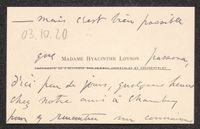 — mais c'est bien possible
03.10.20
que Madame Hyacinthe Loyson passera,
d'ici peu de jours, quelques heures
chez notre ami à Chambéry
pour y rencontrer un